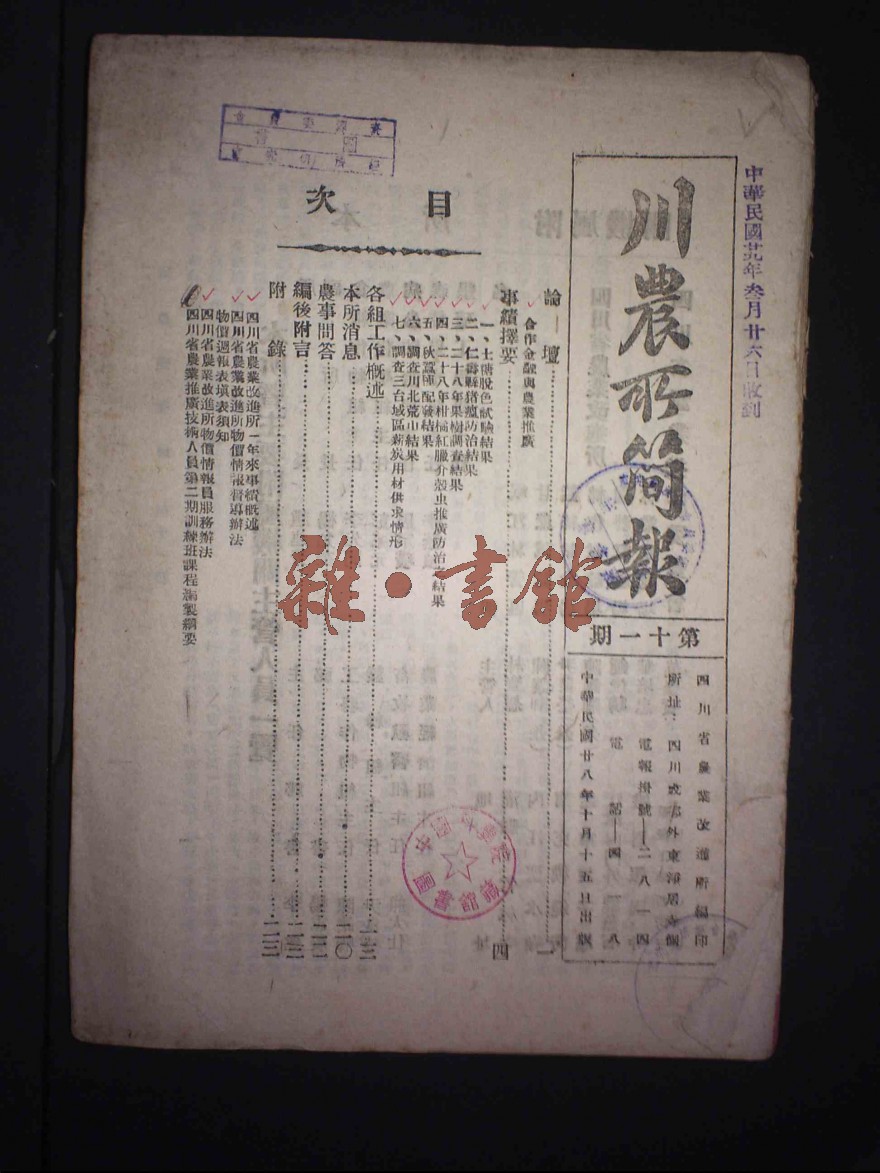 中華民國廿九年叁月廿六日收到
川農所簡報
第十一期
四川省農業改進所編印
所址：四川成都外東淨居寺側
電報掛號——二八一四
電話——四一八
中華民國廿八年十月十五日出版
目次
論壇 一
合作金融與農業推廣
事績擇要 四
一、土糖脫色試驗結果
二、仁壽縣猪瘟防治結果
三、二十八年果樹調查結果
四、二十八年柑橘紅臘介殼虫推廣防治之結果
五、秋蠶種配發結果
六、調查川北荒山結果
七、調查三台城區薪炭用材供求情形
各組工作概述 一三
本所消息 二〇
農事問答 二二
編後附言
附錄
四川省農業改進所一年來事績概述
四川省農業改進所物價情報督導辦法
物價週報表填表須知
四川省農業改進所物價情報員服務辦法
四川省農業推廣技術人員第二期訓練班課程編製綱要
雜·書館